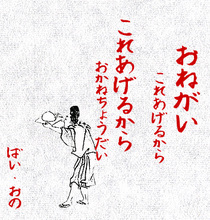 おねがい
これあげるから
これあげるから
おかねちょうだい
ばい・おの